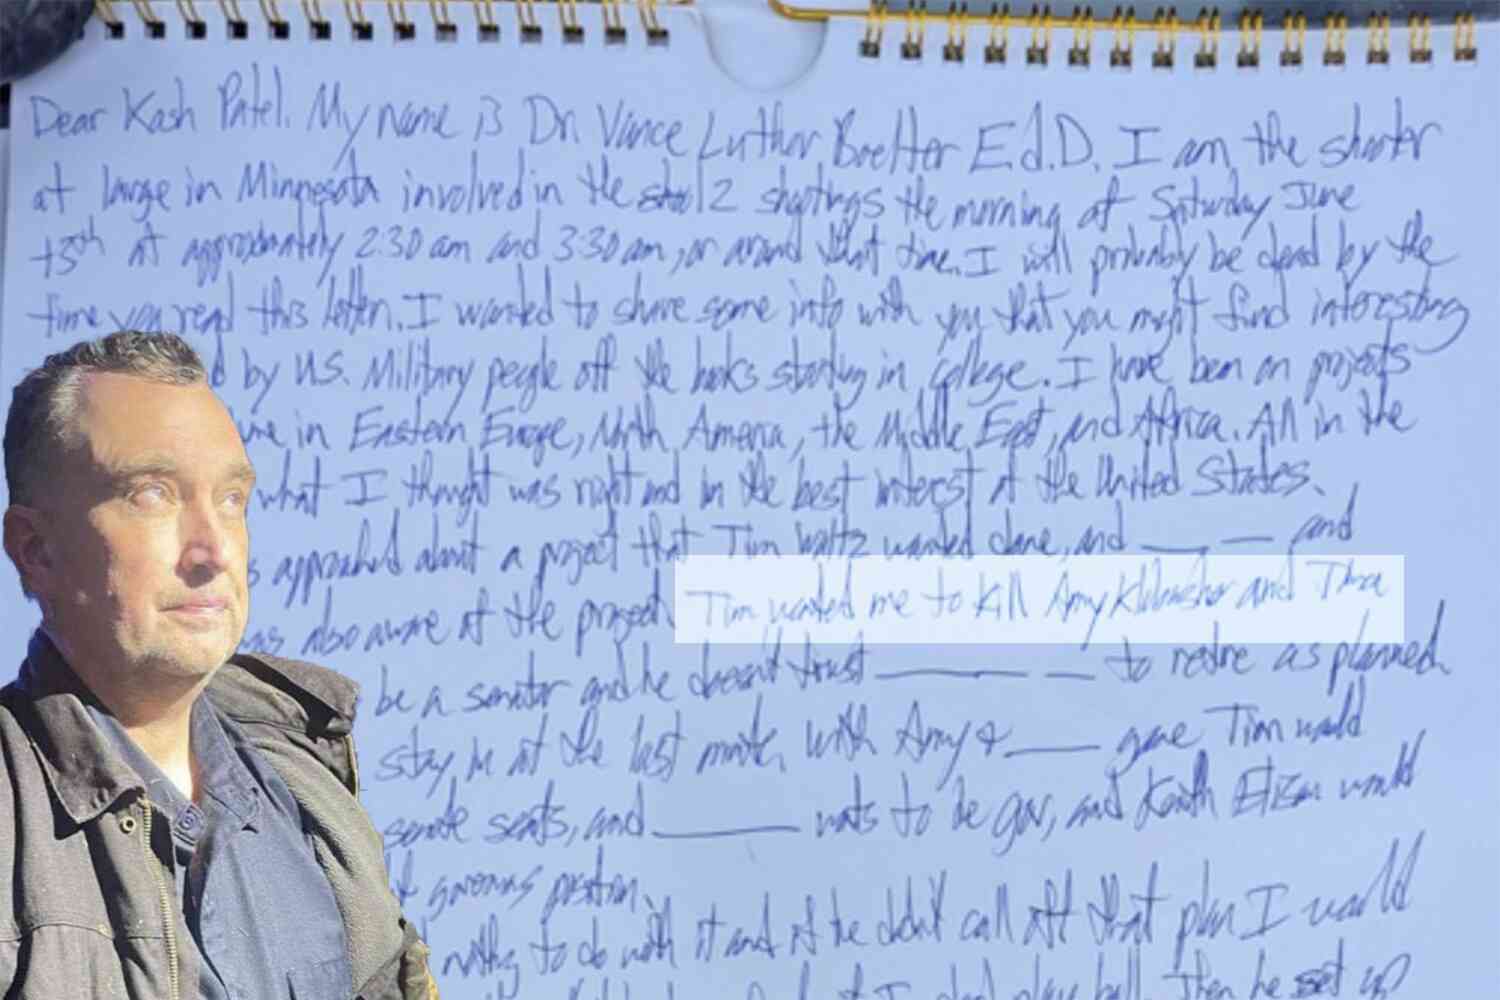 Dear Kash Patel. My name is Dr. Vance Luther Boelter Ed.D. I am the shooter
at large in Minnesota involved in the 2 shootings the morning of Saturday June
13th at approximately 2:30 am and 3:30 am, or around that time. I will probably be dead by the
time you read this letter. I wanted to share some info with you that you might find interesting
by U.S. Military people off the books starting in college. I have been on projects
in Eastern Europe, North America, the Middle East, and Africa. All in the
what I thought was right and in the best interest of the United States.
approached about a project that Tim Waltz wanted done, and ____ ___ and
also aware of the project. Tim wanted me to kill Amy Klobuchar and
be a senator and he doesn't trust ________ ___ to retire as planned
stay in at the last minute. With Amy & ____ gone Tim would
senate seats, and ________ wants to be gov, and Keith would
governors position.
nothing to do with it and if he didn't call off that plan I would
play ball. Then he set up